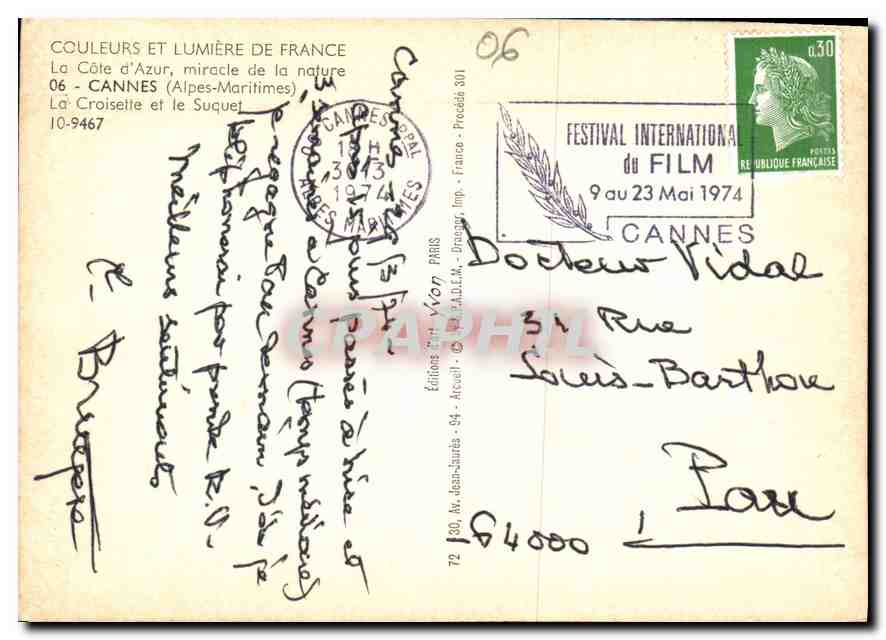 COULEURS ET LUMIÈRE DE FRANCE
La Côte d'Azur, miracle de la nature
06 - CANNES (Alpes-Maritimes)
La Croisette et le Suquet
10-9467
06
CANNES PPAL
18 H
3 - 3
1974
ALPES MARITIMES
FESTIVAL INTERNATIONAL
du FILM
9 au 23 Mai 1974
CANNES
0,30
POSTES
REPUBLIQUE FRANÇAISE
Cannes le 3/74
Après jours passés à Nice et
3 semaines à Cannes (temps médiocre)
je regagne Pau demain, d'où je
téléphonerai pour prendre R.V.
Meilleurs sentiments
Docteur Vidal
34 Rue
Louis-Barthou
Pau
64000
Éditions d'art Yvon PARIS
72 130, Av. Jean-Jaurès - 94 - Arcueil - © S.P.A.D.E.M., - Draeger, Imp. - France - Procédé 301
CPAPHIL